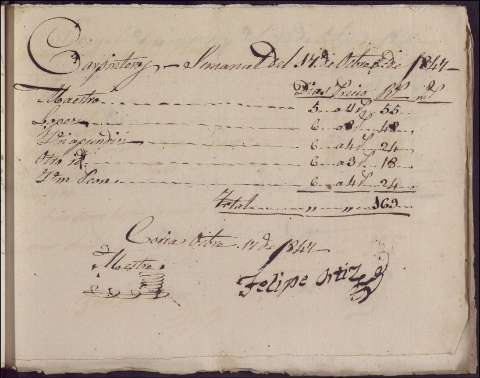 Carpinteros Semana del 17 de Octre de 1847
Dias Precio Rs
Maestro 5 a 55
Lopez 6 a 8 48
Un aprendiz 6 a 4 24
Otro id. 6 a 3 18
6 a 4 24
Total 169
Coria Octre 17 de 1847
Maestro
Felipe Ortiz